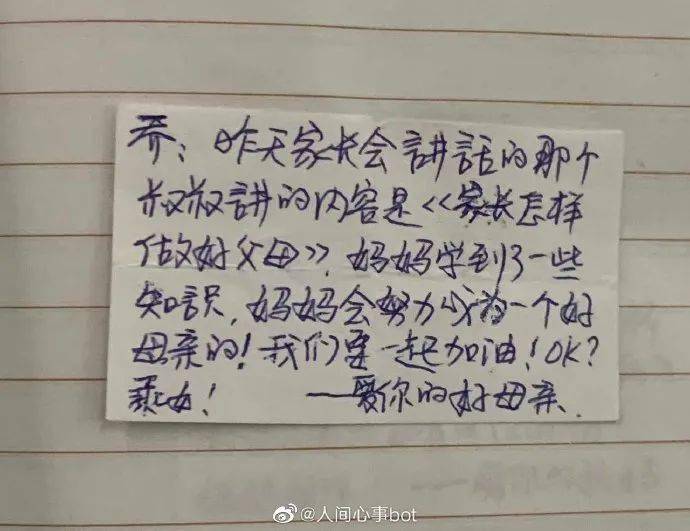 乔：昨天家长会讲话的那个
叔叔讲的内容是《家长怎样
做好父母》，妈妈学到了一些
知识，妈妈会努力成为一个好
母亲的！我们要一起加油！OK？
乖女！ ——爱你的好母亲.
@人间心事bot